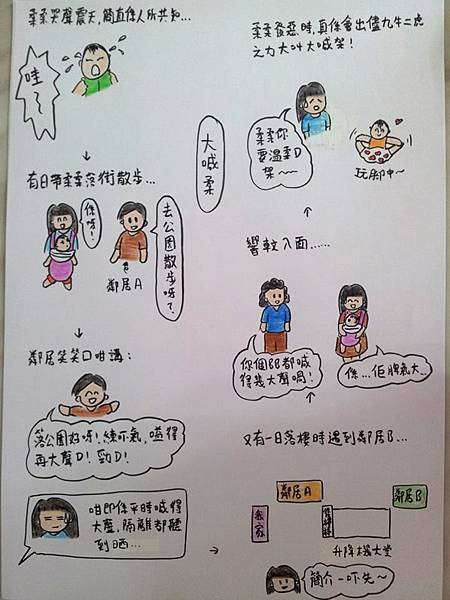 大喊柔
柔柔哭聲震天,簡直係人所共知...
哇~
↓
有日帶柔柔落街散步...
係呀!
去公園散步呀?
鄰居A
↓
鄰居笑笑口咁講:
落公園好呀!練吓氣,嗌得
再大聲D!勁D!
咁即係平時喊得
大聲,隔離都聽
到晒...
→
鄰居A
鄰居B
我家
升降機大堂
簡介一吓先~
又有一日落樓時遇到鄰居B...
↑
你個BB都喊
得幾大聲喎!
係...佢脾氣大...
響較入面......
↑
柔柔發惡哇,真係會出儘九牛二虎
之力大叫大喊架!
柔柔你
要溫柔D
架~~
玩腳中~